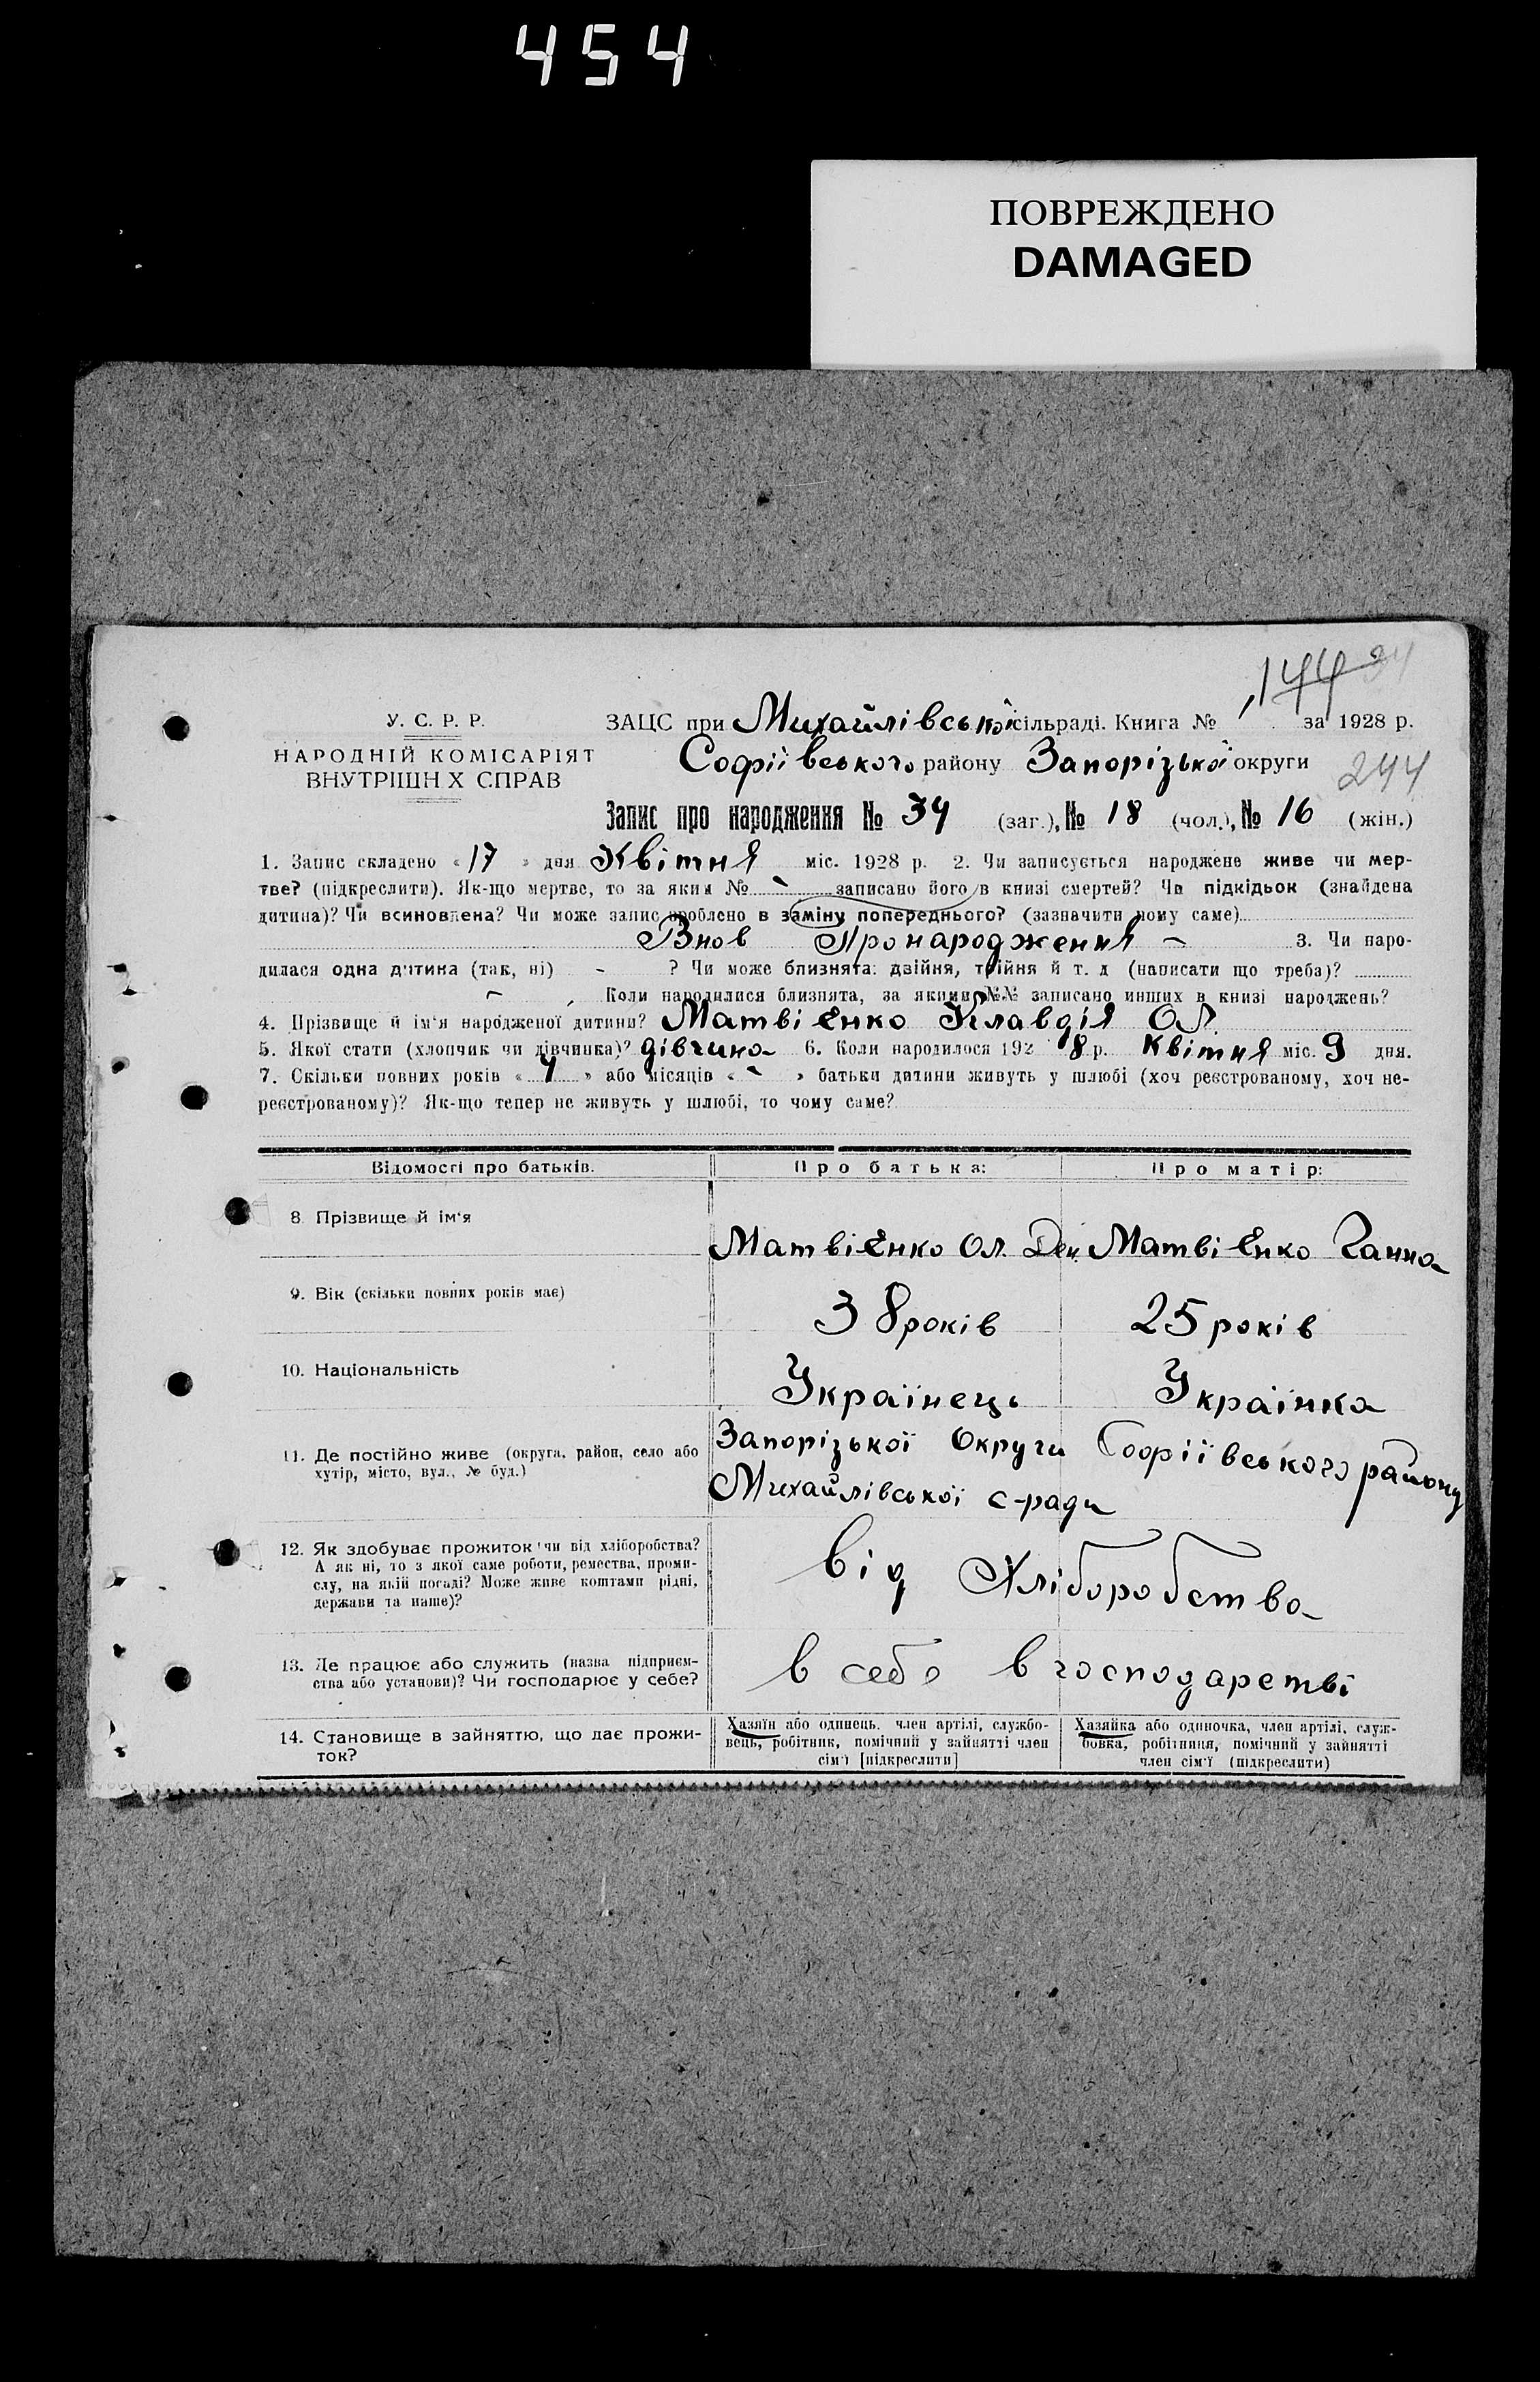 454
ПОВРЕЖДЕНО
DAMAGED
144
У. С. Р. Р.
НАРОДНІЙ КОМІСАРІЯТ
ВНУТРІШН Х СПРАВ
ЗАЦС при Михайлівської сільраді. Книга № за 1928 р.
Софіївського району Запорізької округи
244
Запис про народження № 34 (заг.), № 18 (чол.), № 16 (жін.)
1. Запис складено « 17 » дня Квітня міс. 1928 р. 2. Чи записується народжене живе чи мер-
тве? (підкреслити). Як-що мертве, то за яким № - записано його в книзі смертей? Чи підкідьок (знайдена
дитина)? Чи всиновлена? Чи може запис зроблено в заміну попереднього? (зазначити чому саме)
Внов Про народження - 3. Чи наро-
дилася одна дитина (так, ні) - ? Чи може близнята: двійня, трійня й т. д (написати що треба)?
- Коли народилися близнята, за якими №№ записано инших в книзі народжень?
4. Прізвище й ім'я народженої дитини? Матвієнко Клавдія Ол.
5. Якої стати (хлопчик чи дівчинка)? дівчина 6. Коли народилося 192 8 р. Квітня міс. 9 дня.
7. Скільки повних років « 4 » або місяців « - » батьки дитини живуть у шлюбі (хоч реєстрованому, хоч не-
реєстрованому)? Як-що тепер не живуть у шлюбі, то чому саме?
Відомості про батьків. Про батька: Про матір:
8. Прізвище й ім'я
Матвієнко Ол. Ден. Матвієнко Ганна
9. Вік (скільки повних років має)
38 років 25 років
10. Національність
Українець Українка
11. Де постійно живе (округа, район, село або
хутір, місто, вул., № буд.)
Запорізької Округи Софіївського району
Михайлівської с-ради
12. Як здобуває прожиток чи від хліборобства?
А як ні, то з якої саме роботи, ремества, проми-
слу, на якій посаді? Може живе коштами рідні,
держави та инше)?
від Хліборобства
13. Де працює або служить (назва підприєм-
ства або установи)? Чи господарює у себе?
в себе в господарстві
14. Становище в зайняттю, що дає прожи-
ток?
Хазяїн або одинець, член артілі, службо-
вець, робітник, помічний у зайнятті член
сім'ї [підкреслити]
Хазяйка або одиночка, член артілі, служ-
бовка, робітниця, помічний у зайнятті
член сім'ї (підкреслити)